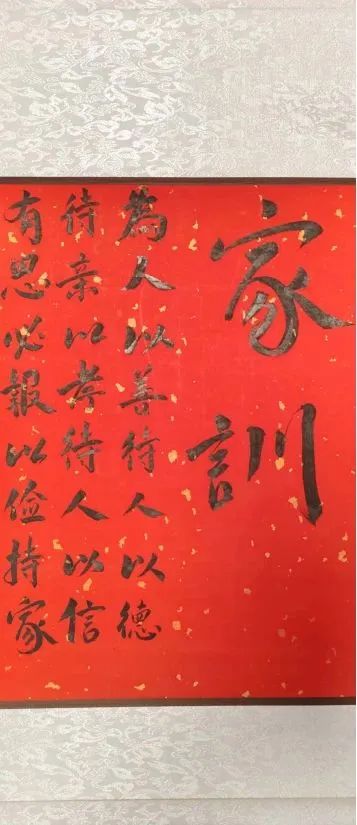 家訓
為人以善待人以德
待亲以孝待人以信
有恩必報以俭持家